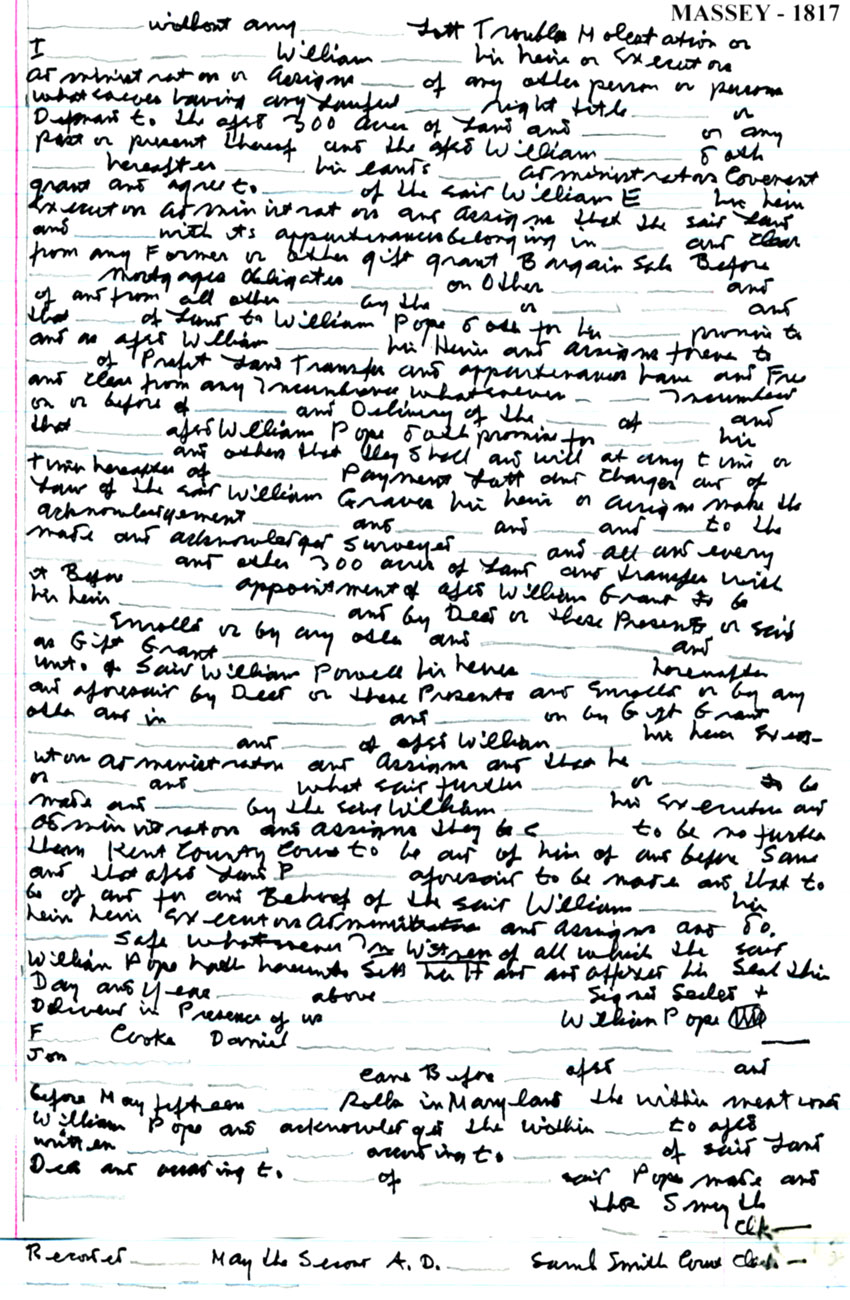 MASSEY - 1817
without any ____ Lett Trouble Molestation or
I ____ William ____ his heirs or Executors
Administrators or Assigns ____ of any other person or persons
whatsoever having any Lawful ____ right title ____ or
Demand to the afsd 300 Acres of Land and ____ or any
part or present thereof and the afsd William ____ doth
____ hereafter ____ his ____ administrators Covenant
grant and agree to ____ of the said William E ____ his heirs
Executors Administrators and Assigns that the said Land
and ____ with its appurtenances belonging in ____ and Clear
from any Former or other gift grant Bargain Sale Before
____ mortgages obligates ____ on Other ____ and
of and from all other ____ by the ____ or ____ and
that ____ of Land to William Pope doth for his ____ promis to
and as afsd William ____ his Heirs and Assigns forever to
____ of Profit Land Transfer and appurtenances have and Free
and Clear from any Incumbrance whatsoever ____
on or before of ____ and Delivery of the ____ of ____ and
that ____ afsd William Pope doth promise for ____ his
____ and others that they Shall and will at any time or
times hereafter of ____ Payment Lett and Charges and of
Law of the said William Graves his heirs or Assigns make the
acknowledgement ____ and ____ and ____ and ____ to the
made and acknowledged Surveyed ____ and all and every
____ and other 300 acres of Land and transfer with
____ Before ____ appointment of afsd William Grant to be
his heirs ____ and by Deed or these Presents or said
____ Enrolled or by any other and ____ and ____
as Gift Grant ____
unto of Said William Powell his heires ____ hereafter
and aforesaid by Deed or these Presents and Enrolled or by any
other and in ____ and ____ on by Gift Grant
____ and ____ of afsd William ____ his heirs Exec-
utors Administrators and Assigns and that he ____
or ____ and ____ what said further ____ or ____ to be
made and ____ by the said William ____ his Executors and
Administrators and Assigns they be ____ to be no further
them Kent County Court to be and of him of and before Same
and that afsd Land P ____ aforesaid to be made and that to
be of and for and Behoof of the said William ____ his
heirs heirs Executors Administrators and Assigns and do.
____ Safe whatsoever In Witness of all which the said
William Pope hath hereunto Sett his Hand and affixed his Seal this
Day and Year ____ above ____ Signed Sealed +
Deliverd in Presence of us William Pope
F ____ Cooke Daniel ____
Jon ____
____ came Before ____ afsd ____ and
before May fifteen ____ Rolls in Maryland the within mentiond
William Pope and acknowledged the Within ____ to afsd
written ____ according to ____ of said Land
Deed and according to. ____ of ____ said Pope made and
thos Smyth
Clk
Recorded ____ May the Second A. D. ____ Saml Smith Court Clerk